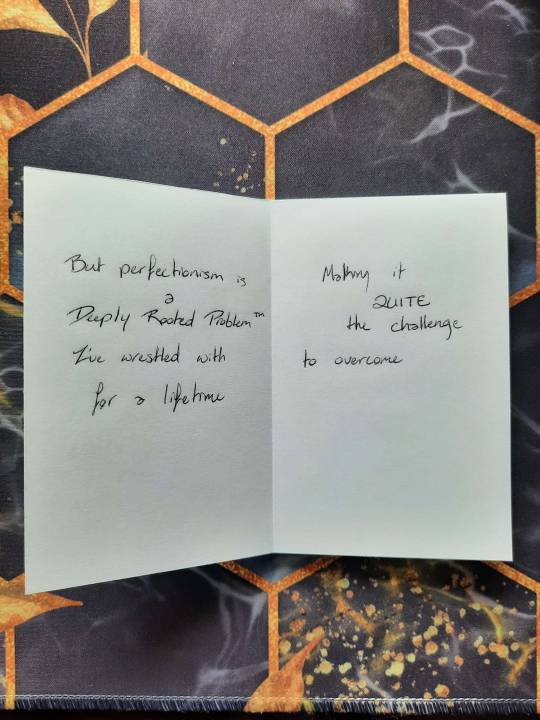 But perfectionism is
a
Deeply Rooted Problem™
I've wrestled with
for a lifetime
Making it
QUITE
the challenge
to overcome